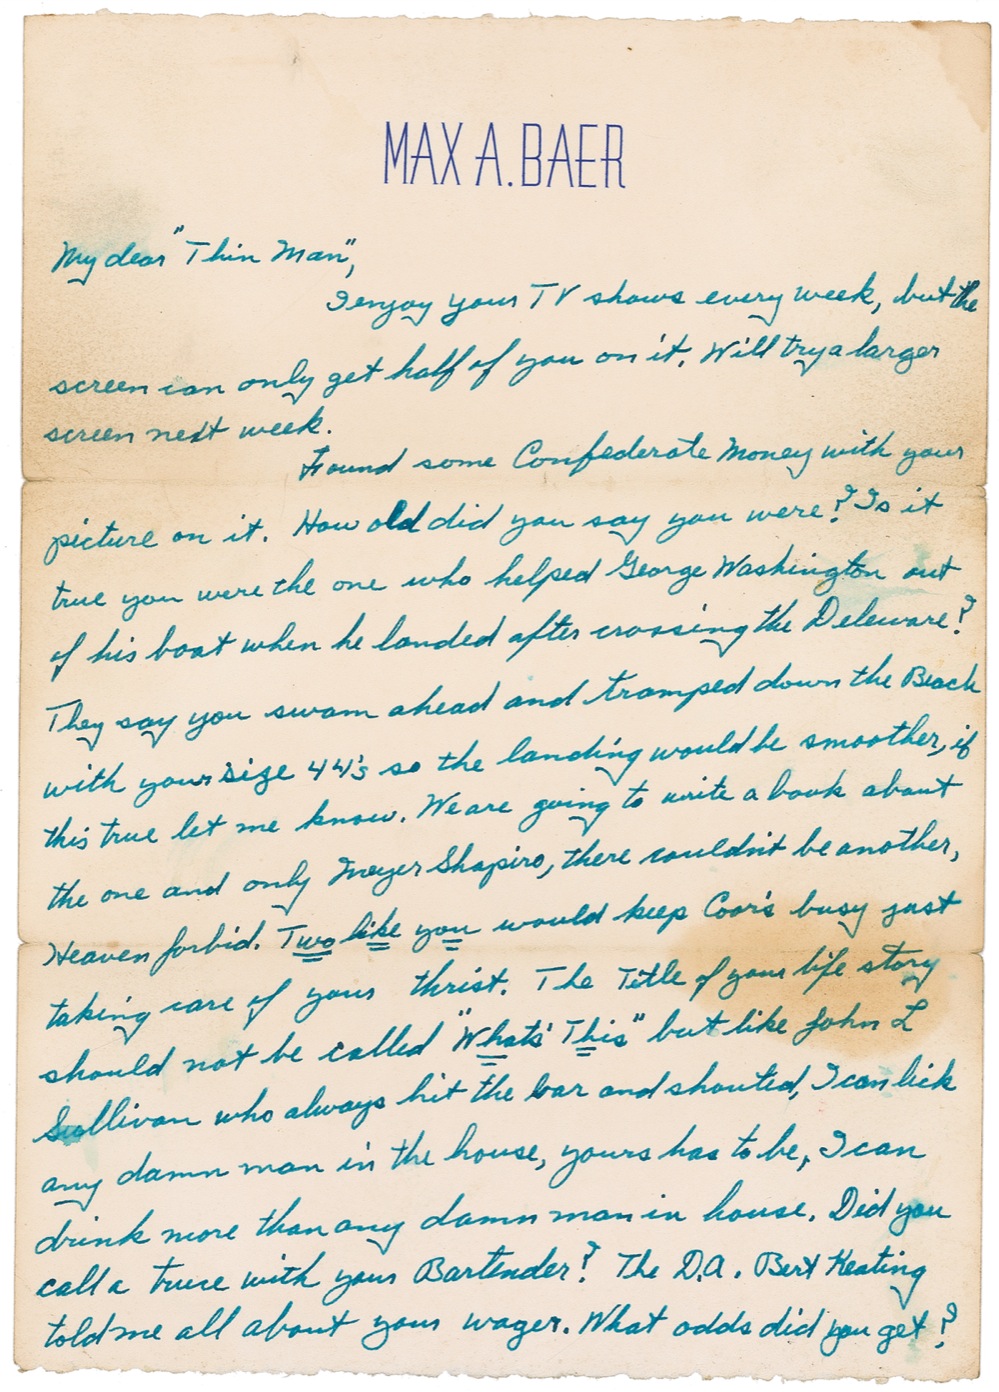 MAX A. BAER
My dear "Thin Man",
I enjoy your TV shows every week, but the
screen can only get half of you on it. Will try a larger
screen next week.
Found some Confederate Money with your
picture on it. How old did you say you were? Is it
true you were the one who helped George Washington out
of his boat when he landed after crossing the Deleware?
They say you swam ahead and tramped down the Beach
with your size 44's so the landing would be smoother, if
this true let me know. We are going to write a book about
the one and only Meyer Shapiro, there couldn't be another,
Heaven forbid. Two like you would keep Coor's busy just
taking care of your thrist. The Title of your life story
should not be called "Whats' This" but like John L
Sullivan who always hit the bar and shouted, I can lick
any damn man in the house, yours has to be, I can
drink more than any damn man in house. Did you
call a truce with your Bartender? The D.A. Bert Keating
told me all about your wager. What odds did you get?